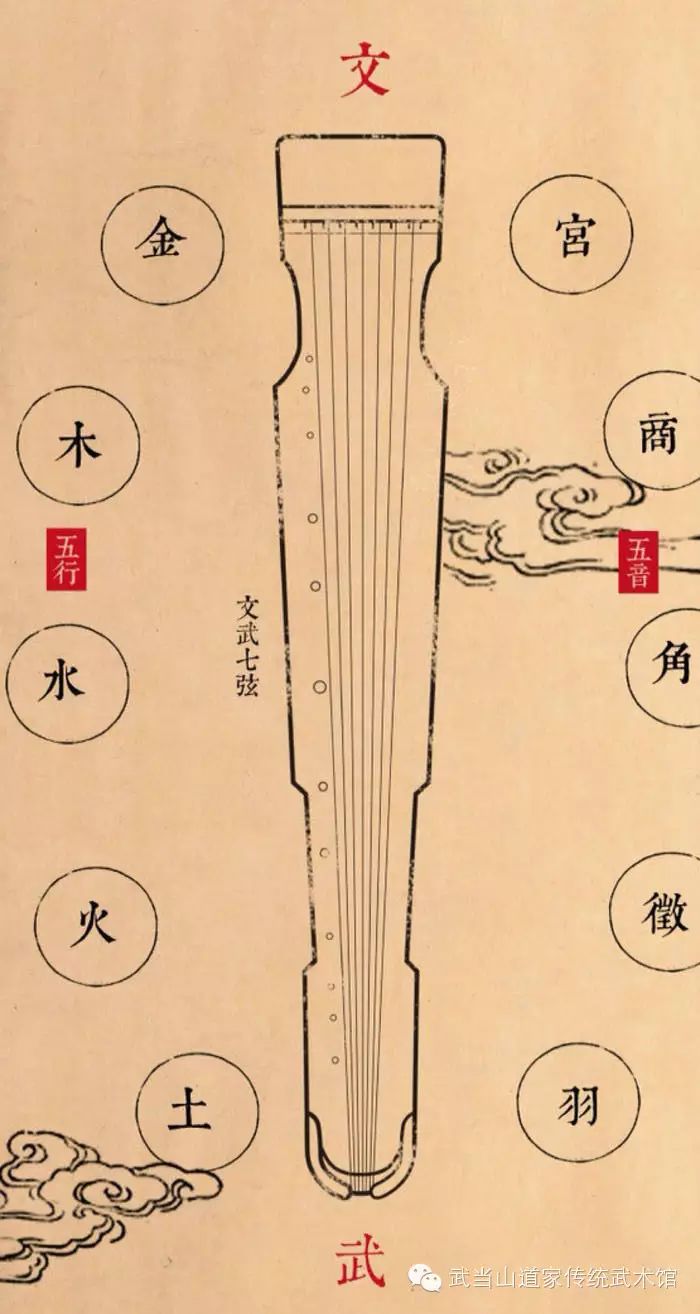 文
金
宮
木
商
五行
五音
文武七弦
水
角
火
徵
土
羽
武
武当山道家传统武术馆